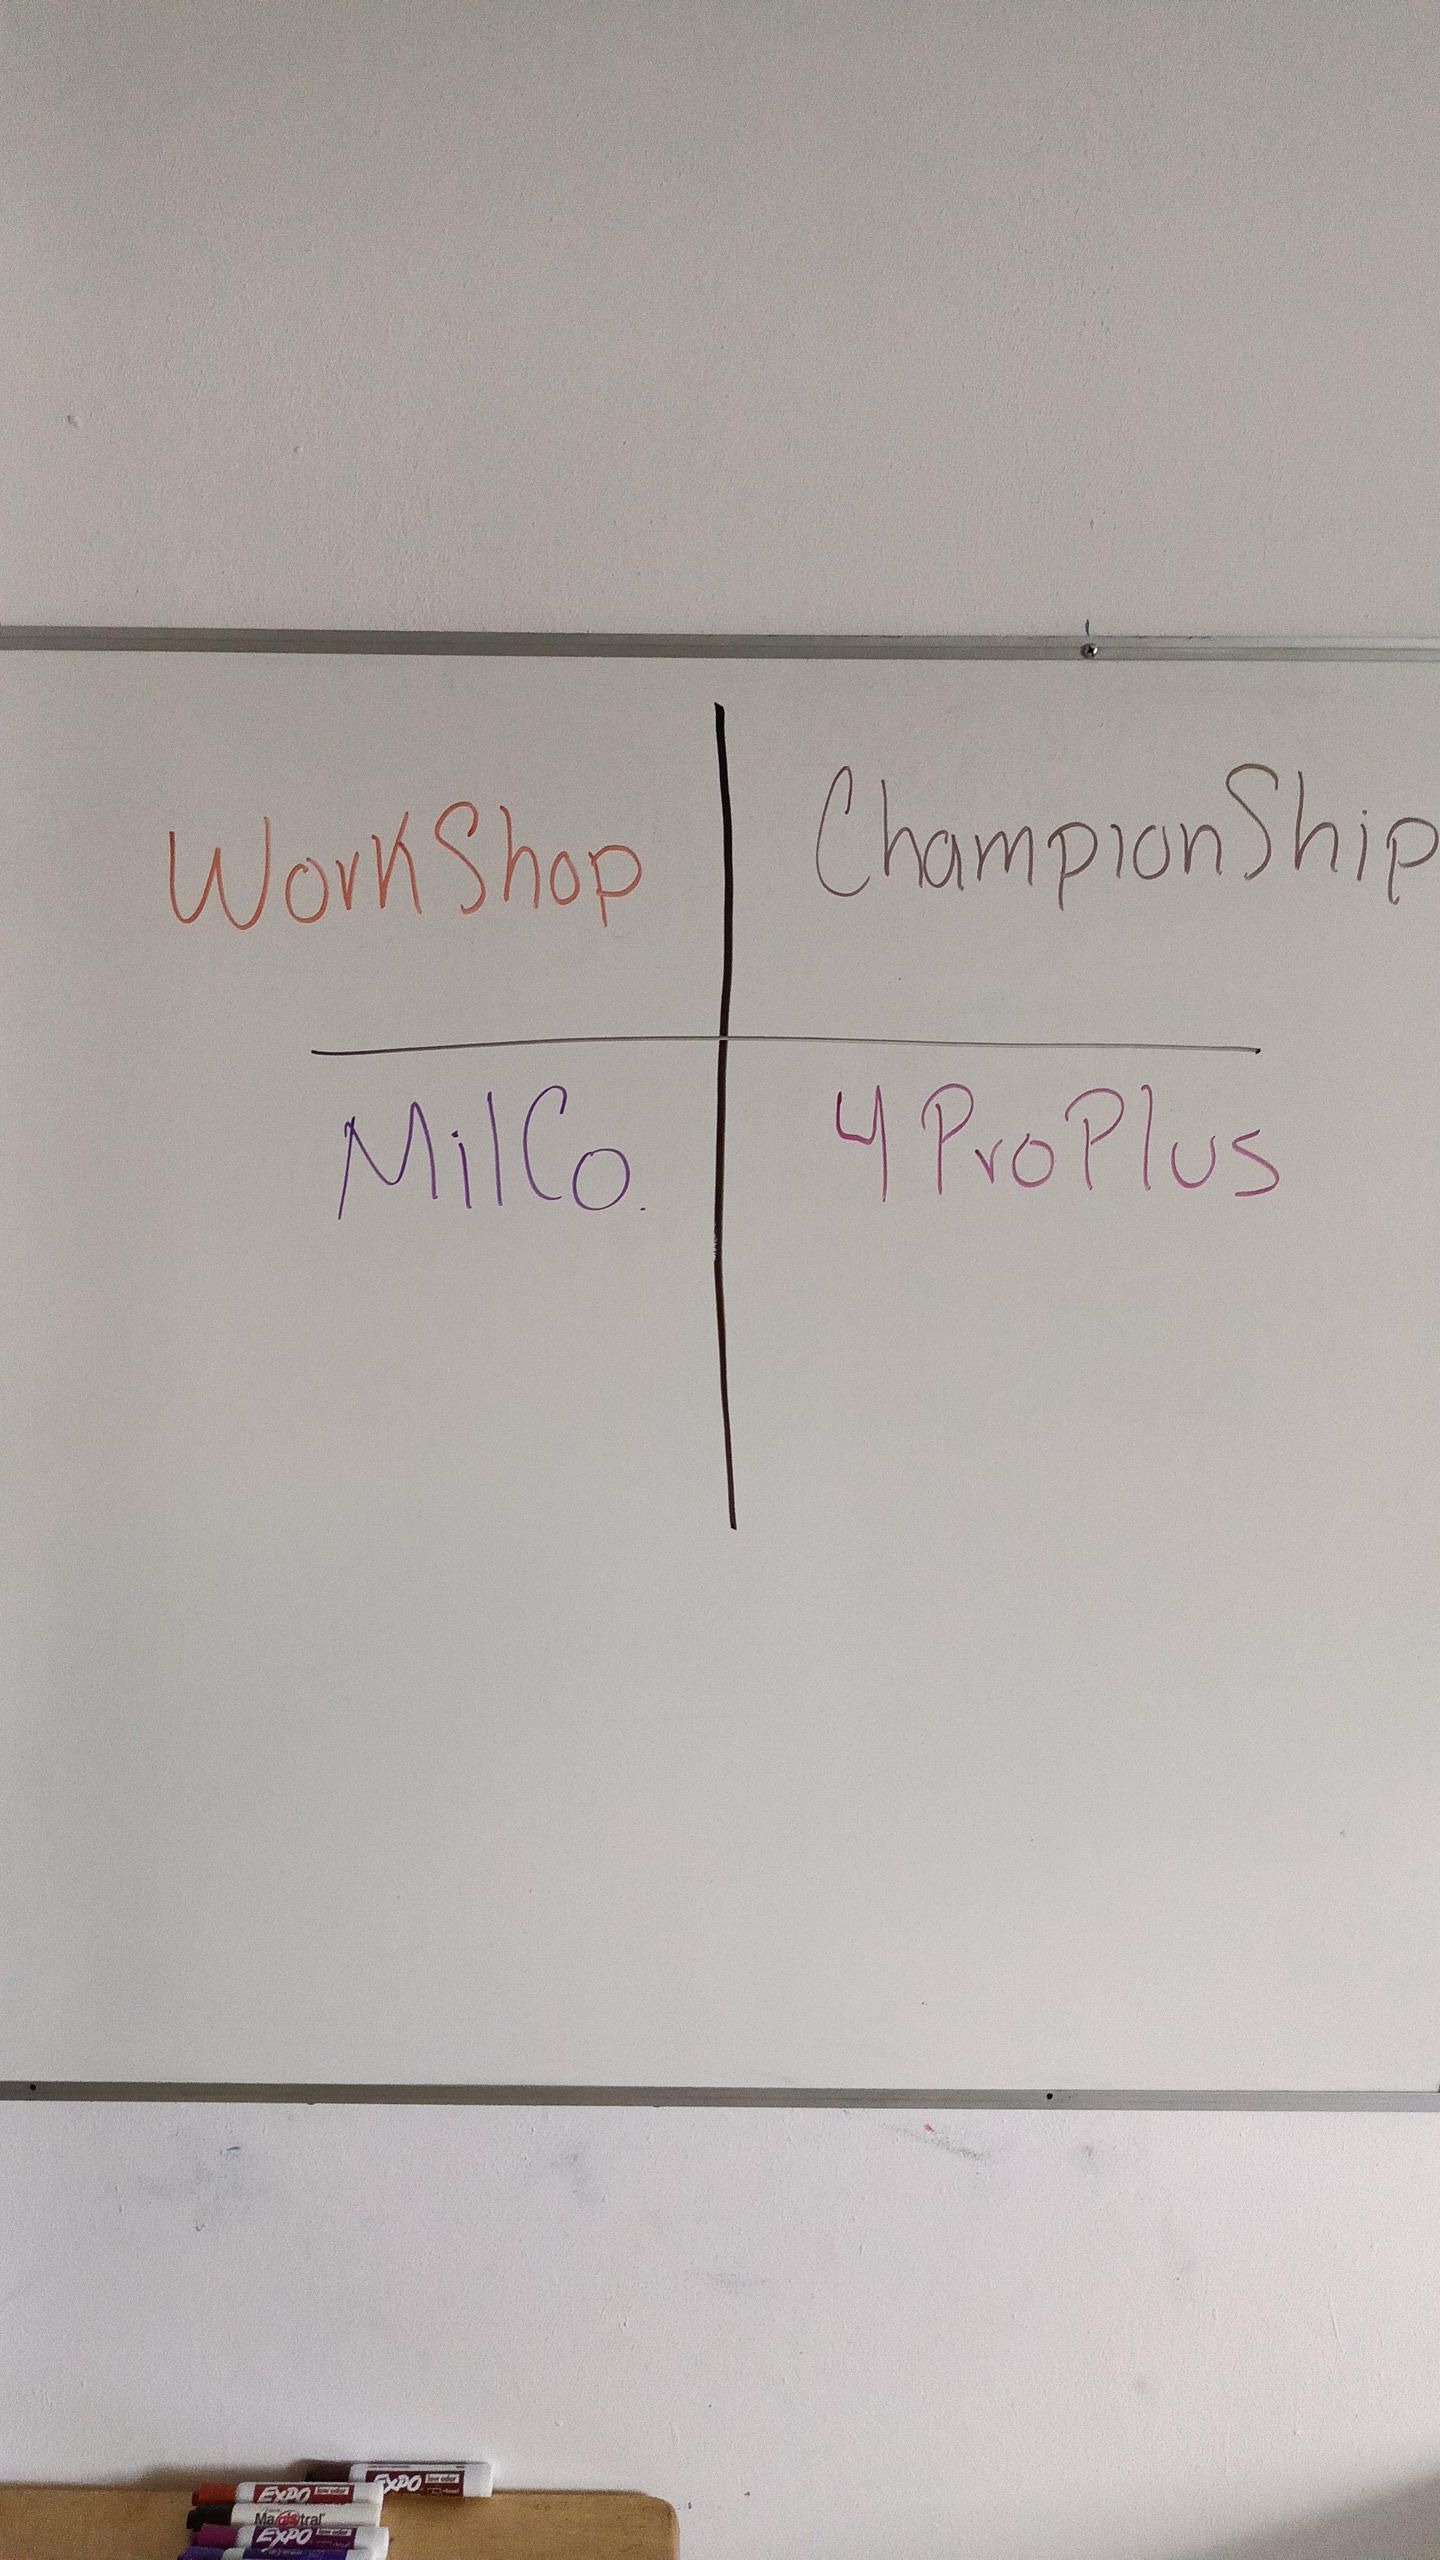 WorkShop
ChampionShip
MilCo.
4ProPlus
EXPO low odor
EXPO low odor
Magistral
EXPO low odor